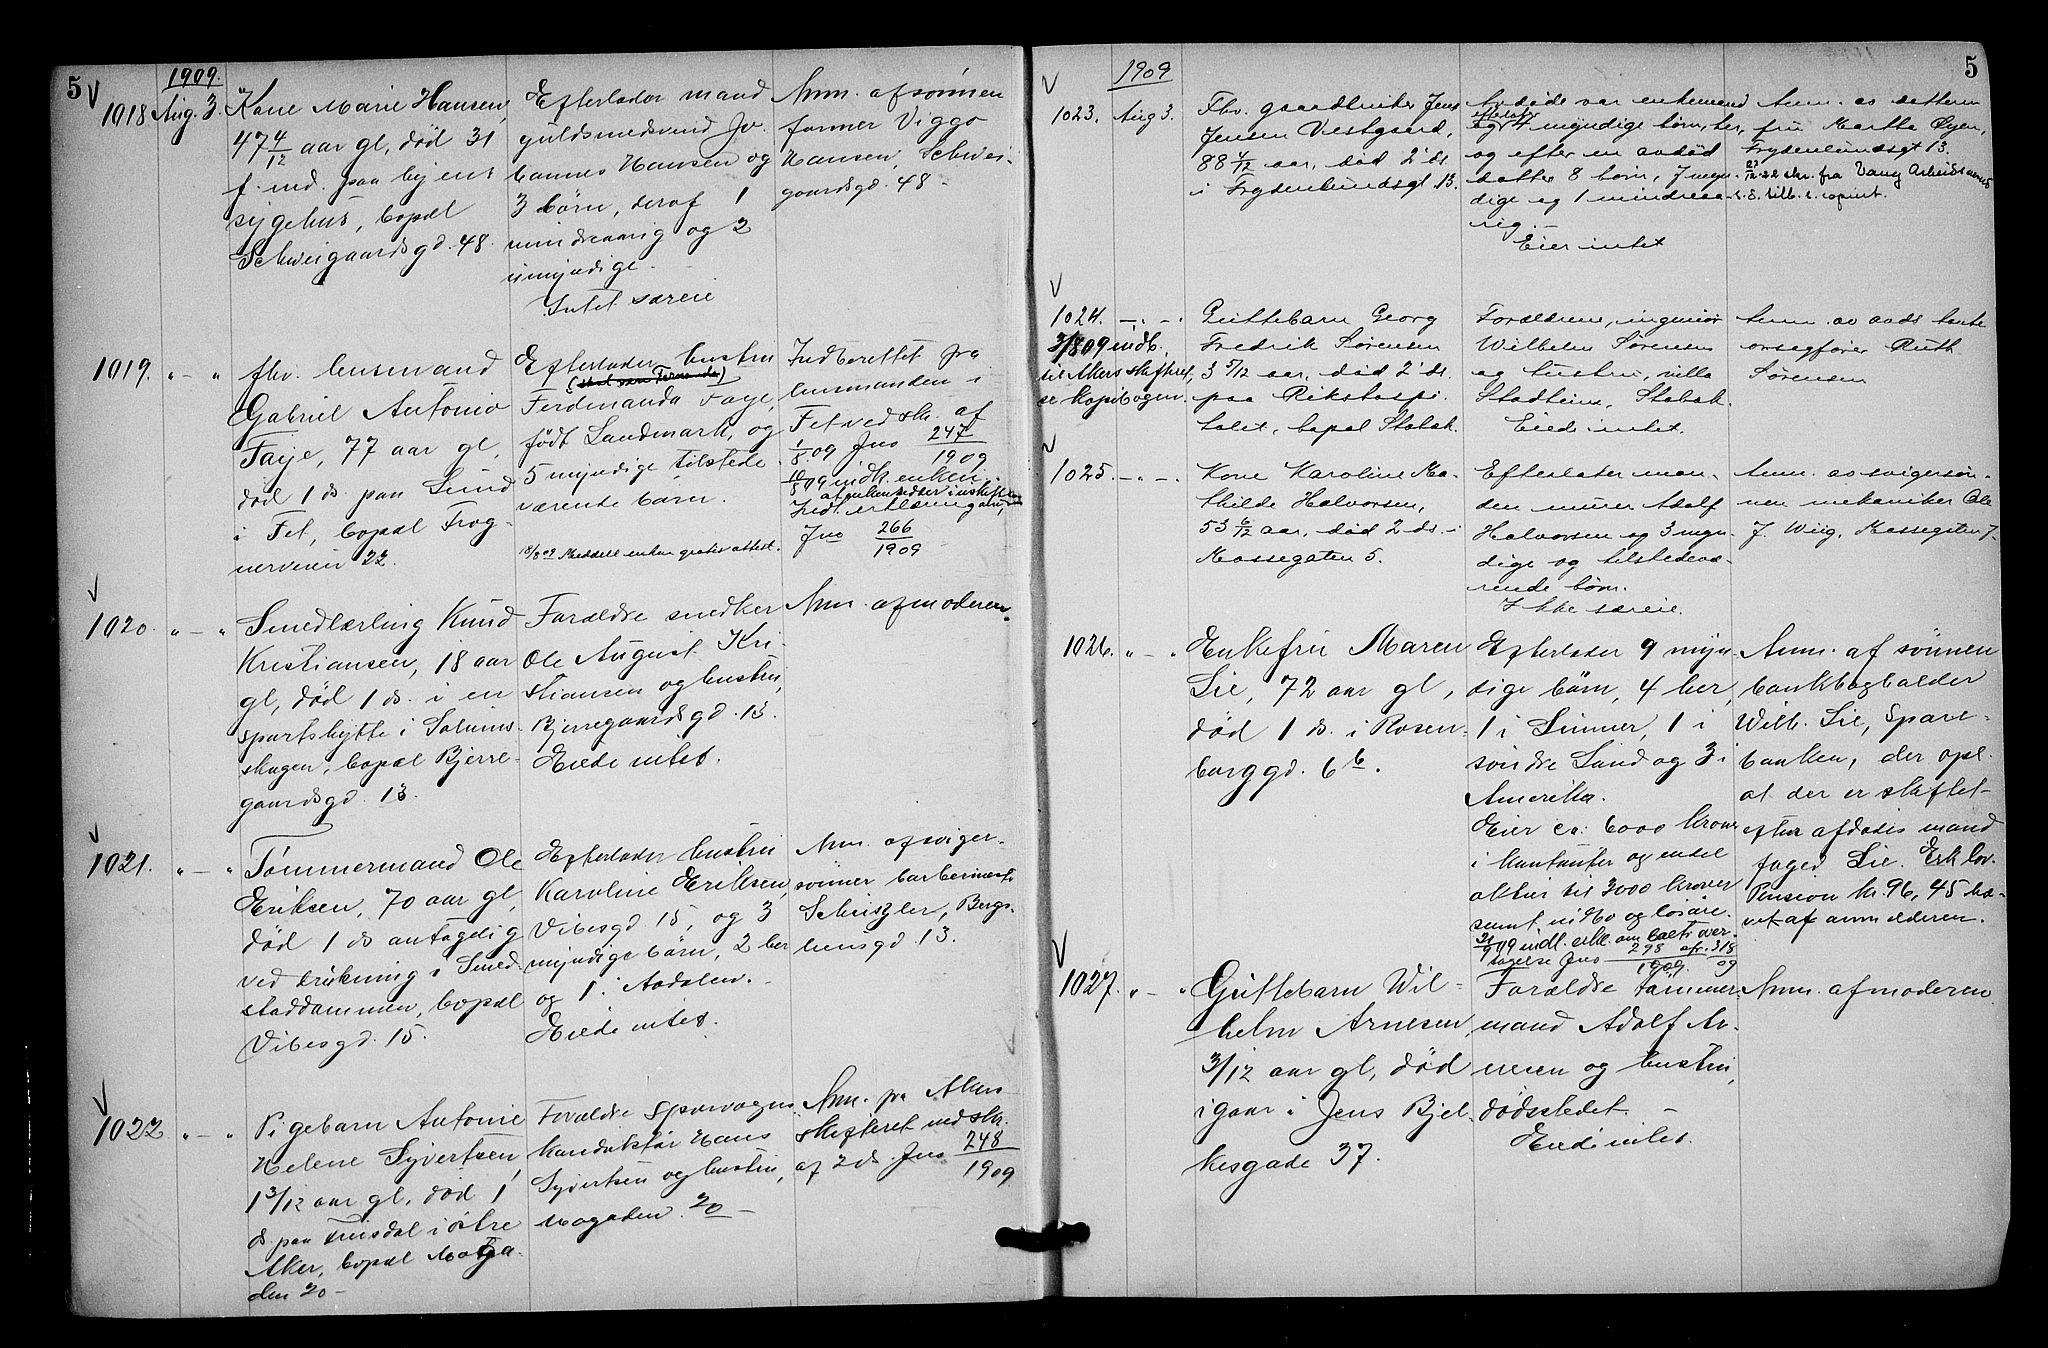 5
1909.
1018 Aug. 3. Kone Marie Hansen,
47 4/12 aar gl, død 31
f. md. paa byens
sygehus, bopæl
Schweigaardsgd. 48.
Efterlader mand
guldsmedsvend Jo-
hannes Hansen og
3 børn, deraf 1
mindreaarig og 2
umyndige.
Intet særeie
Anm. af sønnen
former Viggo
Hansen, Schwei-
gaardsgd. 48 -
1019. " - " fhv. husmand
Gabriel Antonio
Faye, 77 aar gl,
død 1 ds. paa Sund
i Fet, bopæl Frog-
nerveien 22.
Efterlader hustru
Ferdinanda Faye,
født Landmark, og
5 myndige tilstede-
værende børn.
18/8 09 Meddelt enken gratis attest.
Indberettet fra
lensmanden i
Fet ved skr. af
1/8 09 Jno 247/1909
10/8 09 indk. enken
Jno 266/1909
1020. " - " Smedlærling Knud
Kristiansen, 18 aar
gl, død 1 ds. i en
sportshytte i Sørums-
skogen, bopæl Bjerre-
gaardsgd. 13.
Forældre snedker
Ole August Kri-
stiansen og hustru,
Bjerregaardsgd. 13.
Eiede intet.
Anm. af moderen.
1021. " - " Tømmermand Ole
Eriksen, 70 aar gl,
død 1 ds antagelig
ved drukning i Smed-
staddammen, bopæl
Vibesgd. 15.
Efterlader hustru
Karoline Eriksen,
Vibesgd. 15, og 3
myndige børn, 2 her
og 1 i Aadalen.
Eiede intet.
Anm. af sviger-
sønner barbermest.
Schüszler, Bergs-
liensgd. 13.
1022 " - " Pigebarn Antonie
Helene Syvertsen
1 3/12 aar gl, død 1
ds. paa Furusdal i østre
Aker, bopæl Motzga-
den 20 -
Forældre sporvogns
konduktør Hans
Syvertsen og hustru,
Mogaden 20 -
Anm. fra Akers
skifteret ved skr.
af 2 ds. Jno 248/1909
5
1909
1023. Aug 3. Fhv. gaardbruker Jens
Jensen Vestgaard,
aar, død 2' ds.
i Frydenlundsgt 13.
Avdøde var enkemand
og efterlater 4 myndige børn, her,
og efter en avdød
datter 8 børn, 7 myn-
dige og 1 mindreaa-
rig. -
Eier intet
Anm. av datteren
fru Martha Øyen,
Frydenlundsgt 13.
22 skr. fra Vang
1024. - " - Guttebarn Georg
Fredrik Sørensen
3 5/12 aar, død 2' ds.
paa Rikshospi-
talet, bopæl Stabæk.
3/8 09 indb.
til Akers skifteret,
se kopibogen.
Forældrene, ingeniør
Wilhelm Sørensen
og hustru, villa
Stadheim, Stabæk.
Eied intet.
Anm. av avds tante
Ruth
Sørensen
1025. - " - Kone Karoline Ma-
thilde Halvorsen,
53 6/12 aar, død 2 ds. i
Mossegaten 5.
Efterlater man-
den murer Adolf
Halvorsen og 3 myn-
dige og tilstedevæ-
rende børn.
Ikke særeie.
Anm. av svigersøn-
nen mekaniker Ole
J. Wiig, Mossegaten 7.
1026. " - " Enkefru Maren
Lie, 72 aar gl,
død 1 ds. i Rosen-
borggd. 6 b.
Efterlader 9 myn-
dige børn, 4 her,
1 i Lunner, 1 i
søndre Land og 3 i
Amerika.
Eier ca: 6000 kroner
i kontanter og endel
aktier til 3000 kroner
samt indbo og løsøre.
21/9 09 indl. erkl. om boets over-
tagelse Jno 298/1909 cfr. 318/09
Anm. af sønnen
bankbogholder
Wilh. Lie, Spare-
banken, der opl.
at der er skiftet
efter afdødes mand
foged Lie.
Pension kr. 96,45 hæ-
vet af anmelderen.
1027. " - " Guttebarn Wil-
helm Arnesen,
3/12 aar gl, død
igaar i Jens Bjel-
kesgade 37.
Forældre tømmer-
mand Adolf Ar-
nesen og hustru,
dødsstedet. -
Eiede intet.
Anm. af moderen.